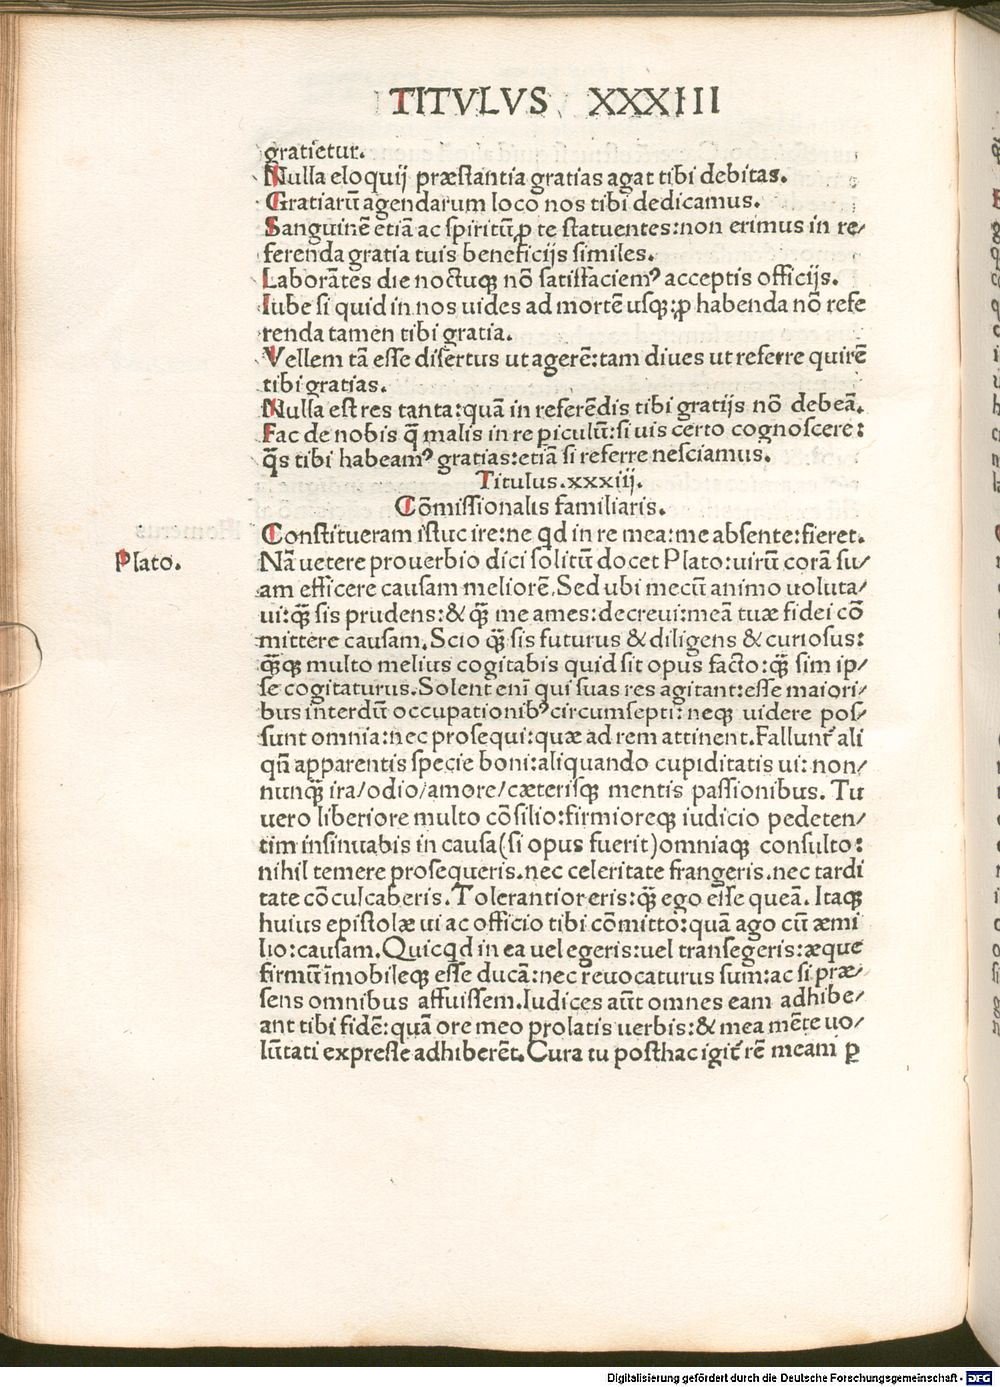 TITVLVS XXXIIII
gratietur.
Nulla eloquij præstantia gratias agat tibi debitas.
Gratiarū agendarum loco nos tibi dedicamus.
Sanguinē etiā ac spiritū ꝓ te statuentes: non erimus in re/
ferenda gratia tuis beneficijs similes.
Laborātes die noctuqꝫ nō satisfaciemꝰ acceptis officijs.
Iube si quid in nos uides ad mortē usqꝫ: ꝓ habenda nō refe
renda tamen tibi gratia.
Vellem tā esse disertus ut agerē: tam diues ut referre quirē
tibi gratias.
Nulla est res tanta: quā in referēdis tibi gratijs nō debeā.
Fac de nobis q̄ malis in re piculū: si uis certo cognoscere:
q̄s tibi habeamꝰ gratias: etiā si referre nesciamus.
Titulus.xxxiij.
Cōmissionalis familiaris.
Constitueram istuc ire: ne qd in re mea: me absente: fieret.
Plato.
Nā uetere prouerbio dici solitū docet Plato: uirū corā su/
am efficere causam meliorē. Sed ubi mecū animo uoluta/
ui: qꝫ̄ sis prudens: & qꝫ̄ me ames: decreui: meā tuæ fidei cō
mittere causam. Scio qꝫ̄ sis futurus & diligens & curiosus:
qꝫ̄qꝫ multo melius cogitabis quid sit opus facto: qꝫ̄ sim ip/
se cogitaturus. Solent eni qui suas res agitant: esse maiori/
bus interdū occupationibꝰ circumsepti: neqꝫ uidere pos/
sunt omnia: nec prosequi: quæ ad rem attinent. Fallunt̄ ali
qn̄ apparentis specie boni: aliquando cupiditatis ui: non/
nunqꝫ̄ ira/odio/amore/cæterisqꝫ mentis passionibus. Tu
uero liberiore multo cōsilio: firmioreqꝫ iudicio pedeten/
tim insinuabis in causa(si opus fuerit)omniaqꝫ consulto:
nihil temere prosequeris. nec celeritate frangeris. nec tardi
tate cōculcaberis. Tolerantior eris: qꝫ̄ ego esse queā. Itaqꝫ
huius epistolæ ui ac officio tibi cōmitto: quā ago cū æmi
lio: causam. Quicqd in ea uel egeris: uel transegeris: æque
firmū īmobileqꝫ esse ducā: nec reuocaturus sum: ac si præ/
sens omnibus affuissem. Iudices aūt omnes eam adhibe/
ant tibi fidē: quā ore meo prolatis uerbis: & mea mēte uo/
lūtati expresse adhiberēt. Cura tu posthac igit̄ rē meam ꝑ
Digitalisierung gefördert durch die Deutsche Forschungsgemeinschaft - DFG